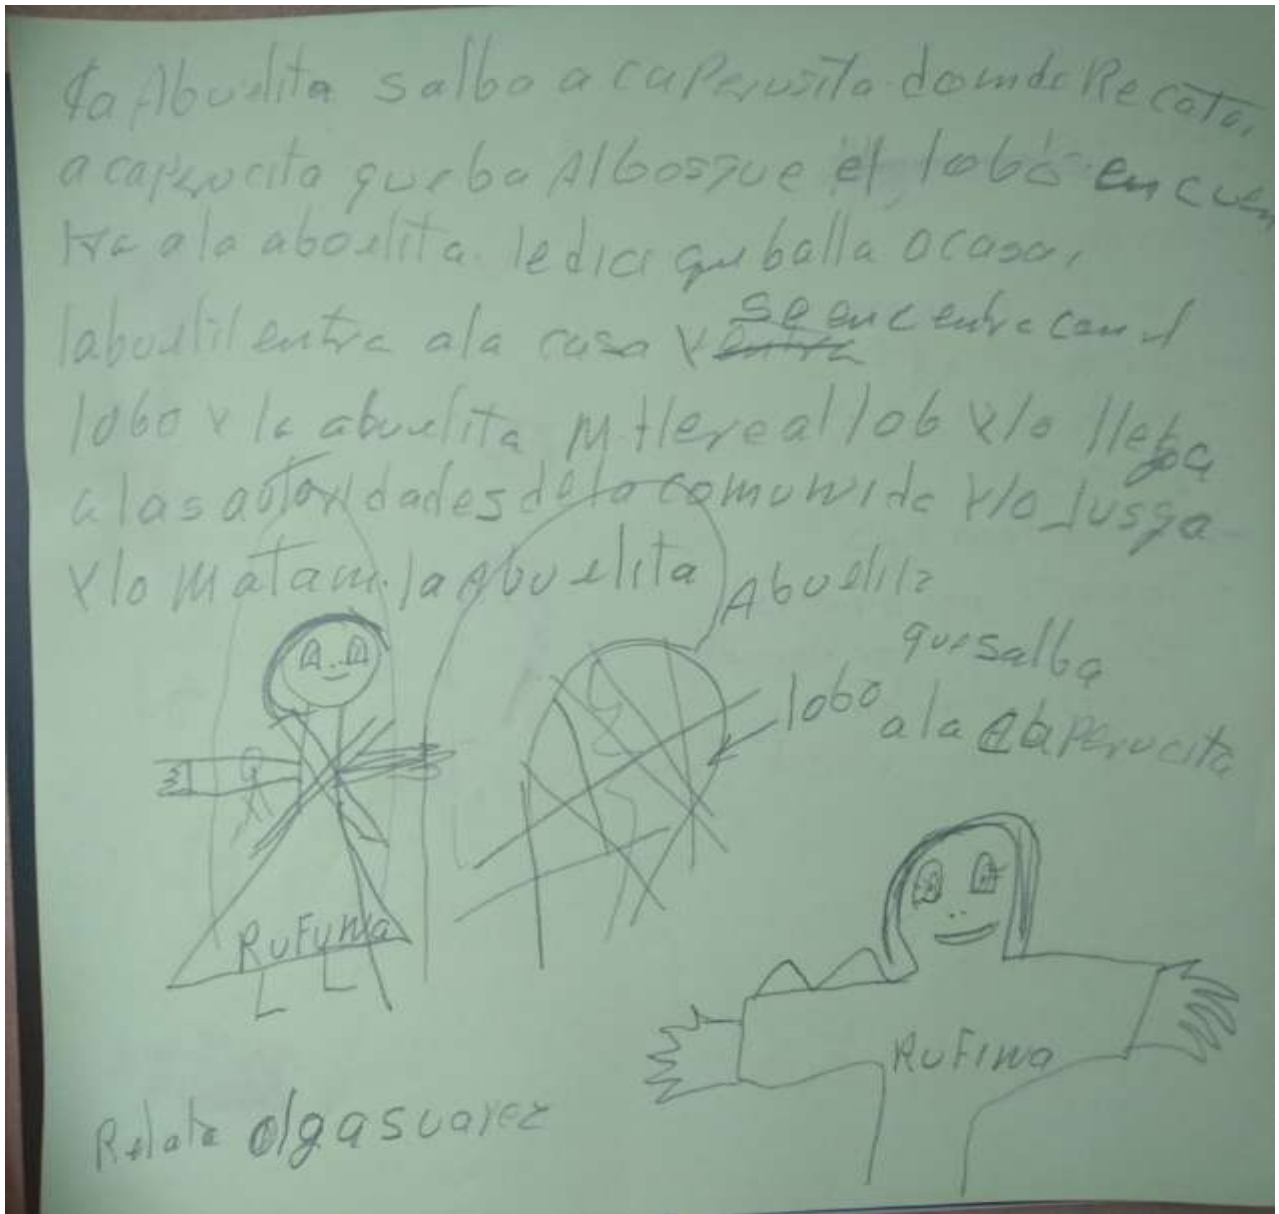 la Abuelita salba a caperusita domde Recata,
a caperucita que ba Al bosque el lobo encuen
tra a la abuelita. le dice que balla a casa,
labuelit entra ala casa y se encentra con el
entra
lobo y la abuelita al lob y lo lleba
a las autoridades de la comunida y lo Jusga
y lo matam. la Abuelita
Abuelita
que salba
a la Caperucita
lobo
RuFyna
RuFina
Relata olga suarez